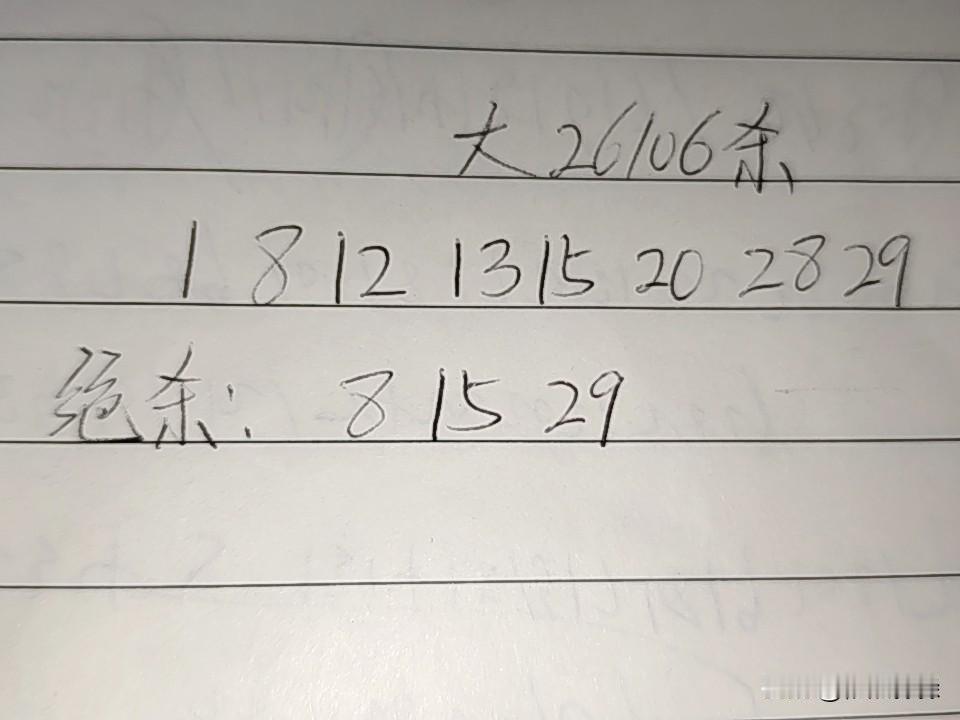 大26106杀
1 8 12 13 15 20 28 29
绝杀: 8 15 29